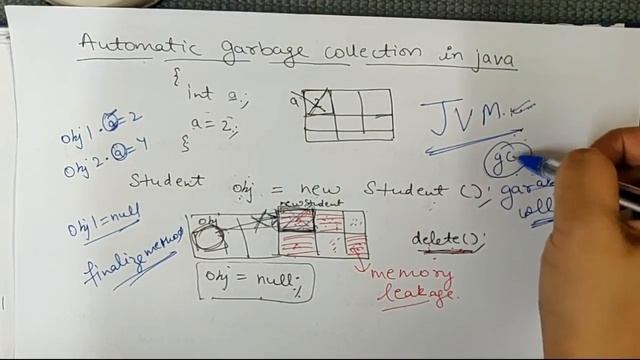 Automatic garbage collection in java
{
int a;
a = 2;
}
a 2
JVM.
obj 1. a = 2
obj 2. a = 4
gc
Student obj = new Student ();
obj 1 = null
finalize method
obj
new Student
obj = null;
delete();
memory
leakage.